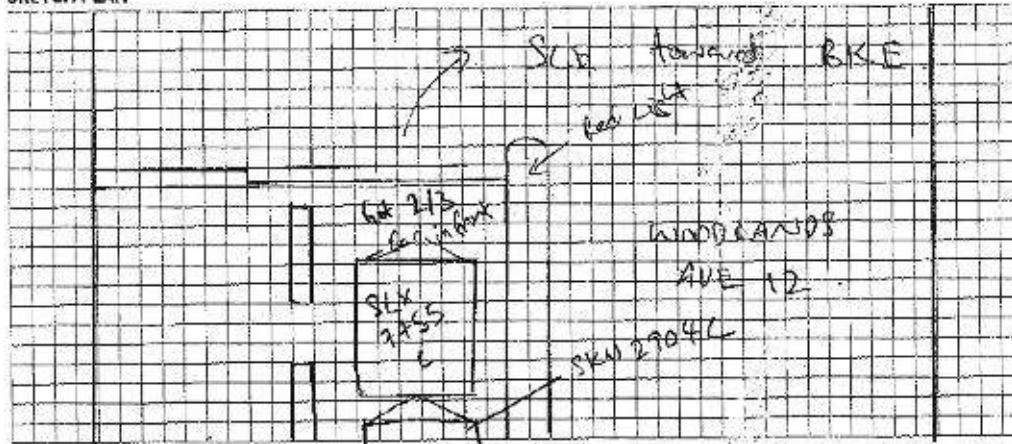 SKETCH PLAN
SLE toward BKE
Red Light
Got 2/3
Car in front
WOODLANDS
AVE 12
SLX
7455
L
SKN 2904L